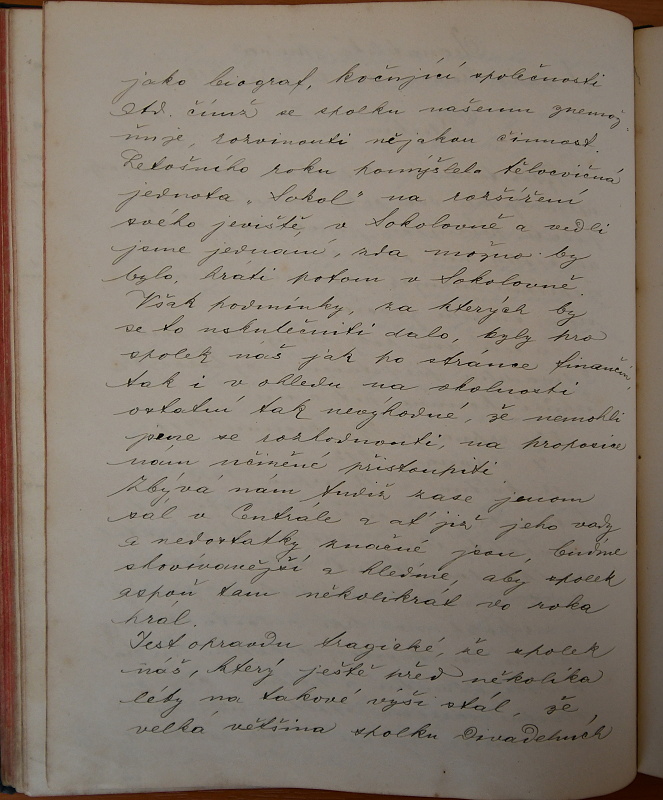 jako biograf, kočující společnosti
atd. čímž se spolku našemu znemož-
ňuje, rozvinouti nějakou činnost.
Letošního roku pomýšlela tělocvičná
jednota „Sokol" na rozšíření
svého jeviště, v Sokolovně a vedli
jsme jednání, zda možno by
bylo, hráti potom v Sokolovně.
Však podmínky, za kterých by
se to uskutečniti dalo, byly pro
spolek náš jak po stránce finanční,
tak i v ohledu na okolnosti
ostatní tak nevýhodné, že nemohli
jsme se rozhodnouti, na propozice
nám učiněné přistoupiti
Zbývá nám tudíž zase jenom
sál v Centrále a ať již jeho vady
a nedostatky značné jsou, buďme
shovívanější a hleďme, aby spolek
aspoň tam několikrát do roka
hrál.
Jest opravdu tragické, že spolek
náš, který ještě před několika
léty na takové výši stál, že
velká většina spolku Divadelních